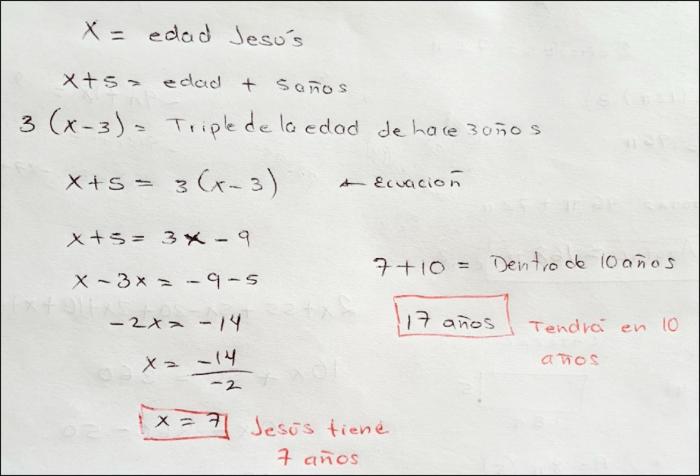 X = edad Jesús
x+5 = edad + 5años
3 (x-3) = Triple de la edad de hace 3 años
x+5 = 3(x-3) ← Ecuación
x+5 = 3x - 9
x - 3x = -9 - 5
-2x = -14
x = -14/-2
x = 7 Jesús tiene
7 años
7+10 = Dentro de 10 años
17 años Tendrá en 10
años